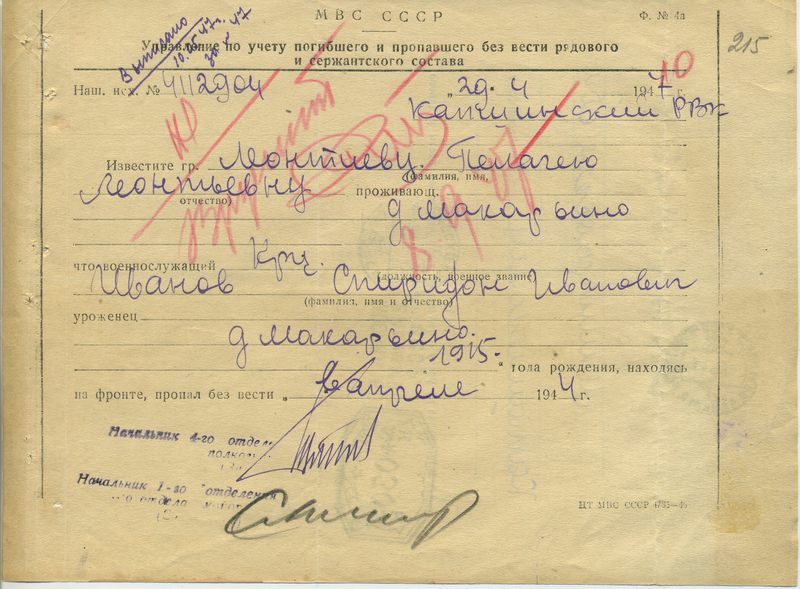 МВС СССР
Ф. № 4а
215
Выписано
10. 47 г.
47
Управление по учету погибшего и пропавшего без вести рядового
и сержантского состава
Наш. исх. № 4112904 „29. 4 1947 г.
Капшинский РВК
Известите гр. Леонтиеву Пелагею
(фамилия, имя,
Леонтьевну проживающ.
отчество)
д Макарьино
что военнослужащий Кр-ц.
(должность, военное звание)
Иванов Спиридон Иванович
(фамилия, имя и отчество)
уроженец
д Макарьино.
1915. года рождения, находясь
на фронте, пропал без вести „ в апреле 1944 г.
Начальник 4-го отдел
полков
Начальник 1-го отделения
отдела
ЦТ МВС СССР